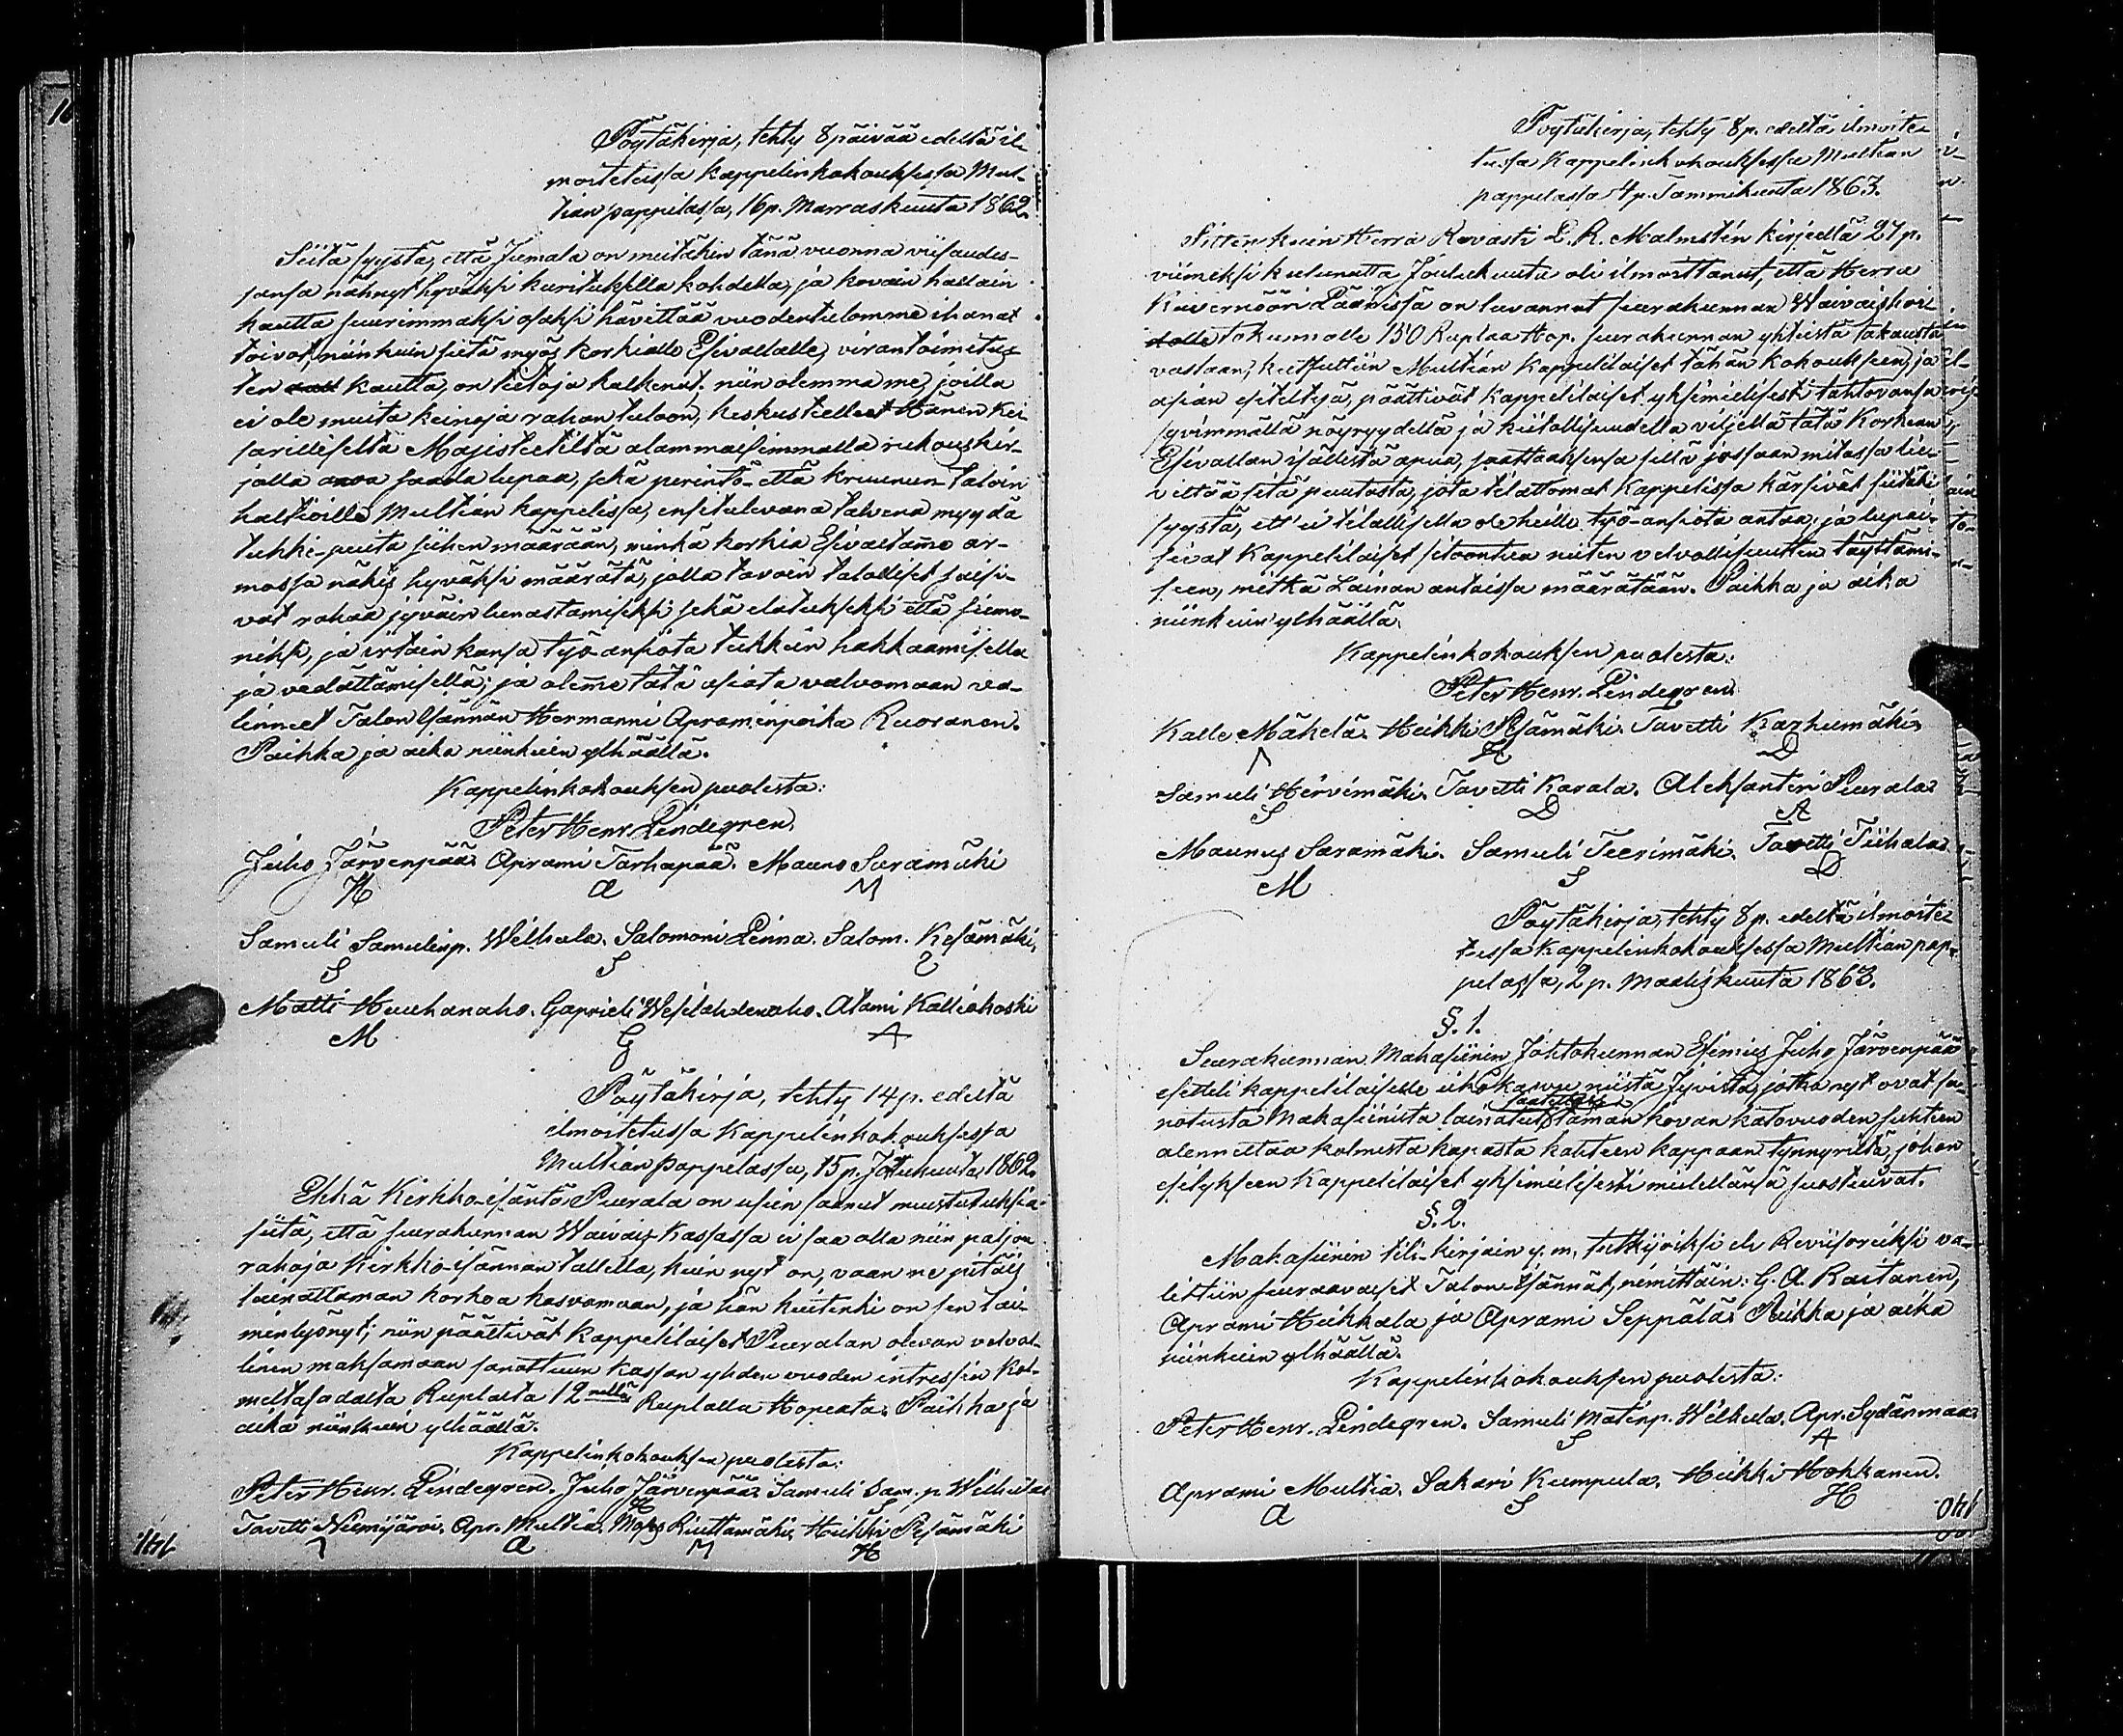 Pöytäkirja, tehty 8 päivää edeltä il-
mortetussa kappelinkokouksessa Mul-
tian pappilassa, 16 p. Marraskuuta 1862.
Siitä syystä, että Jumala on meitäkin tänä vuonna viisaudes-
sansa nähnyt hyväksi kurituksella kohdella, ja kovain hallain
kautta suurimmaksi osaksi hävittää vuodentulomme ihanat
toivot, niinkuin siitä myös korkialle Esivallalle, virantoimitus-
ten kautta, on tietoja kulkenut. niin olemma me, joilla
ei ole muita keinoja rahan tuloon, keskustelleet Hänen Kei-
sarilliselta Majisteetiltä alammaisimmalla rukouskir-
jalla anoa saada lupaa, sekä perintö- että kruunun-taloin
haltioille Multian kappelissa, ensitulevana talvena myydä
tukki-puita siihen määrään, minkä korkia Esivaltamme ar-
mossa näkis hyväksi määrätä, jolla tavoin talolliset saisi-
vat rahaa jyväin lunastamiseksi sekä elatukseksi että sieme-
niksi, ja irtain kansa työ-ansiota tukkein hakkaamisella
ja vedättämisellä; ja olemme tätä asiata valvomaan va-
linneet Talon Isännän Hermanni Apraminpoika Ruoranen.
Paikka ja aika niinkuin ylhäällä.
Kappelinkokouksen puolesta:
Peter Henr. Lindegren.
Juho Järvenpää. Aprami Tarhapää. Mauno Saramäki
H a M
Samuli Samulinp. Wilhula. Salomoni Linna. Salom. Kesämäki,
S S
Matti Huuhanaho. Gaprieli Wesilahdenaho. Atami Kalliokoski
M G A
Pöytäkirja, tehty 14 p. edeltä
ilmoitetussa Kappelinkokouksessa
Multian pappilassa, 15 p. Joulukuuta 1862.
Ehkä Kirkko-isäntä Puurala on usein saanut muistutuksia
siitä, että seurakunnan Waivais Kassassa ei saa olla niin paljon
rahoja Kirkko-isännän tallella, kuin nyt on, vaan ne pitäis
lainattaman korkoa kasvamaan, ja hän kuitenki on sen lai-
minlyönyt; niin päättivät Kappelilaiset Puuralan olevan velvol-
linen maksamaan sanottuun kassan yhden vuoden intressin Kol-
meltasadalta Ruplalta 12 nella Ruplalla Hopeata. Paikka ja
aika niinkuin ylhäällä.
Kappelinkokouksen puolesta:
Peter Henr. Lindegren. Juho Järvenpää. Samuli Sam. p. Wilhula
H S
Tavetti Niemijärvi. Apr. Multia. Riuttamäki. Heikki Pesämäki
a M H
Pöytäkirja, tehty 8 p. edeltä ilmoite-
tussa Kappelinkokouksessa Multian
pappilassa 4 p. Tammikuuta 1863.
Sitten kuin Herra Rovasti L. R. Malmstén kirjeellä 27 p.
viimeksi kulunutta Joulukuuta oli ilmoittanut, että Herra
Kuvernööri Läänissä on luvannut seurakunnan Waivaishoi-
tokunnalle 150 Ruplaa Hop. seurakunnan yhteistä takausta
vastaan, kutsuttiin Multian Kappelilaiset tähän kokoukseen, ja
asian esiteltyä, päättivät Kappelilaiset yksimielisesti tahtovansa
syvimmällä nöyryydellä ja kiitollisuudella viljellä tätä Korkean
Esivallan isällistä apua, saattaaksensa sillä jossaan mitassa lie-
vittää sitä puutosta, jota tilattomat Kappelissa kärsivät siitäki
syystä, ett'ei tilallisella ole heille työ-ansiota antaa; ja lupai-
sivat Kappelilaiset sitoontua niiten velvollisuutten täyttämi-
seen, mitkä Lainan antaissa määrätään. Paikka ja aika
niinkuin ylhäällä.
Kappelinkokouksen puolesta:
Peter Henr. Lindegren.
Kalle Mäkelä. Heikki Pesämäki. Tavetti Karhumäki.
H D
Samuli Hirvimäki. Tavetti Karala. Aleksanteri Puurala.
S D A
Maunus Saramäki. Samuli Teerimäki. Tavetti Tiihala
M S D
Pöytäkirja, tehty 8 p. edeltä ilmoite-
tussa Kappelinkokouksessa Multian pap-
pilassa, 2 p. Maaliskuuta 1863.
§. 1.
Seurakunnan Makasiinin Johtokunnan Esimies Juho Järvenpää
esitteli kappelilaisille niistä Jyvistä, jotka nyt ovat sa-
notusta Makasiinista lainatut tämän kovan katovuoden suhteen
alennettaa kolmesta kapasta kahteen kappaan tynnyriltä, johon
esitykseen Kappelilaiset yksimielisesti mielellänsä suostuivat.
§. 2.
Makasiinin tili-kirjain y. m. tutkijoiksi eli Reviisoreiksi va-
littiin seuraavaiset Talon-Isännät, nimittäin: G. A. Raitanen,
Aprami Heikkala ja Aprami Seppälä. Paikka ja aika
niinkuin ylhäällä.
Kappelinkokouksen puolesta:
Peter Henr. Lindegren. Samuli Matinp. Wilhula. Apr. Sydänmaa
S A
Aprami Multia. Sakari Kumpula. Heikki Hokkanen.
a S H
140